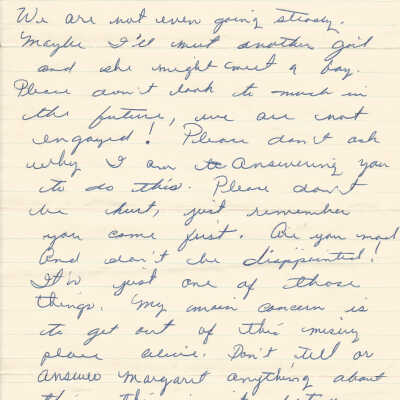 We are not even going steady.
Maybe I'll meet another girl
and she might meet a boy.
Please don't look to much in
the future, we are not
engaged! Please don't ask
why I am answering you
to do this. Please don't
be hurt, just remember
you come first. Are you mad
and don't be disappointed!
It's just one of those
things. My main concern is
to get out of this misery
place alive. Don't tell or
answer Margaret anything about
this